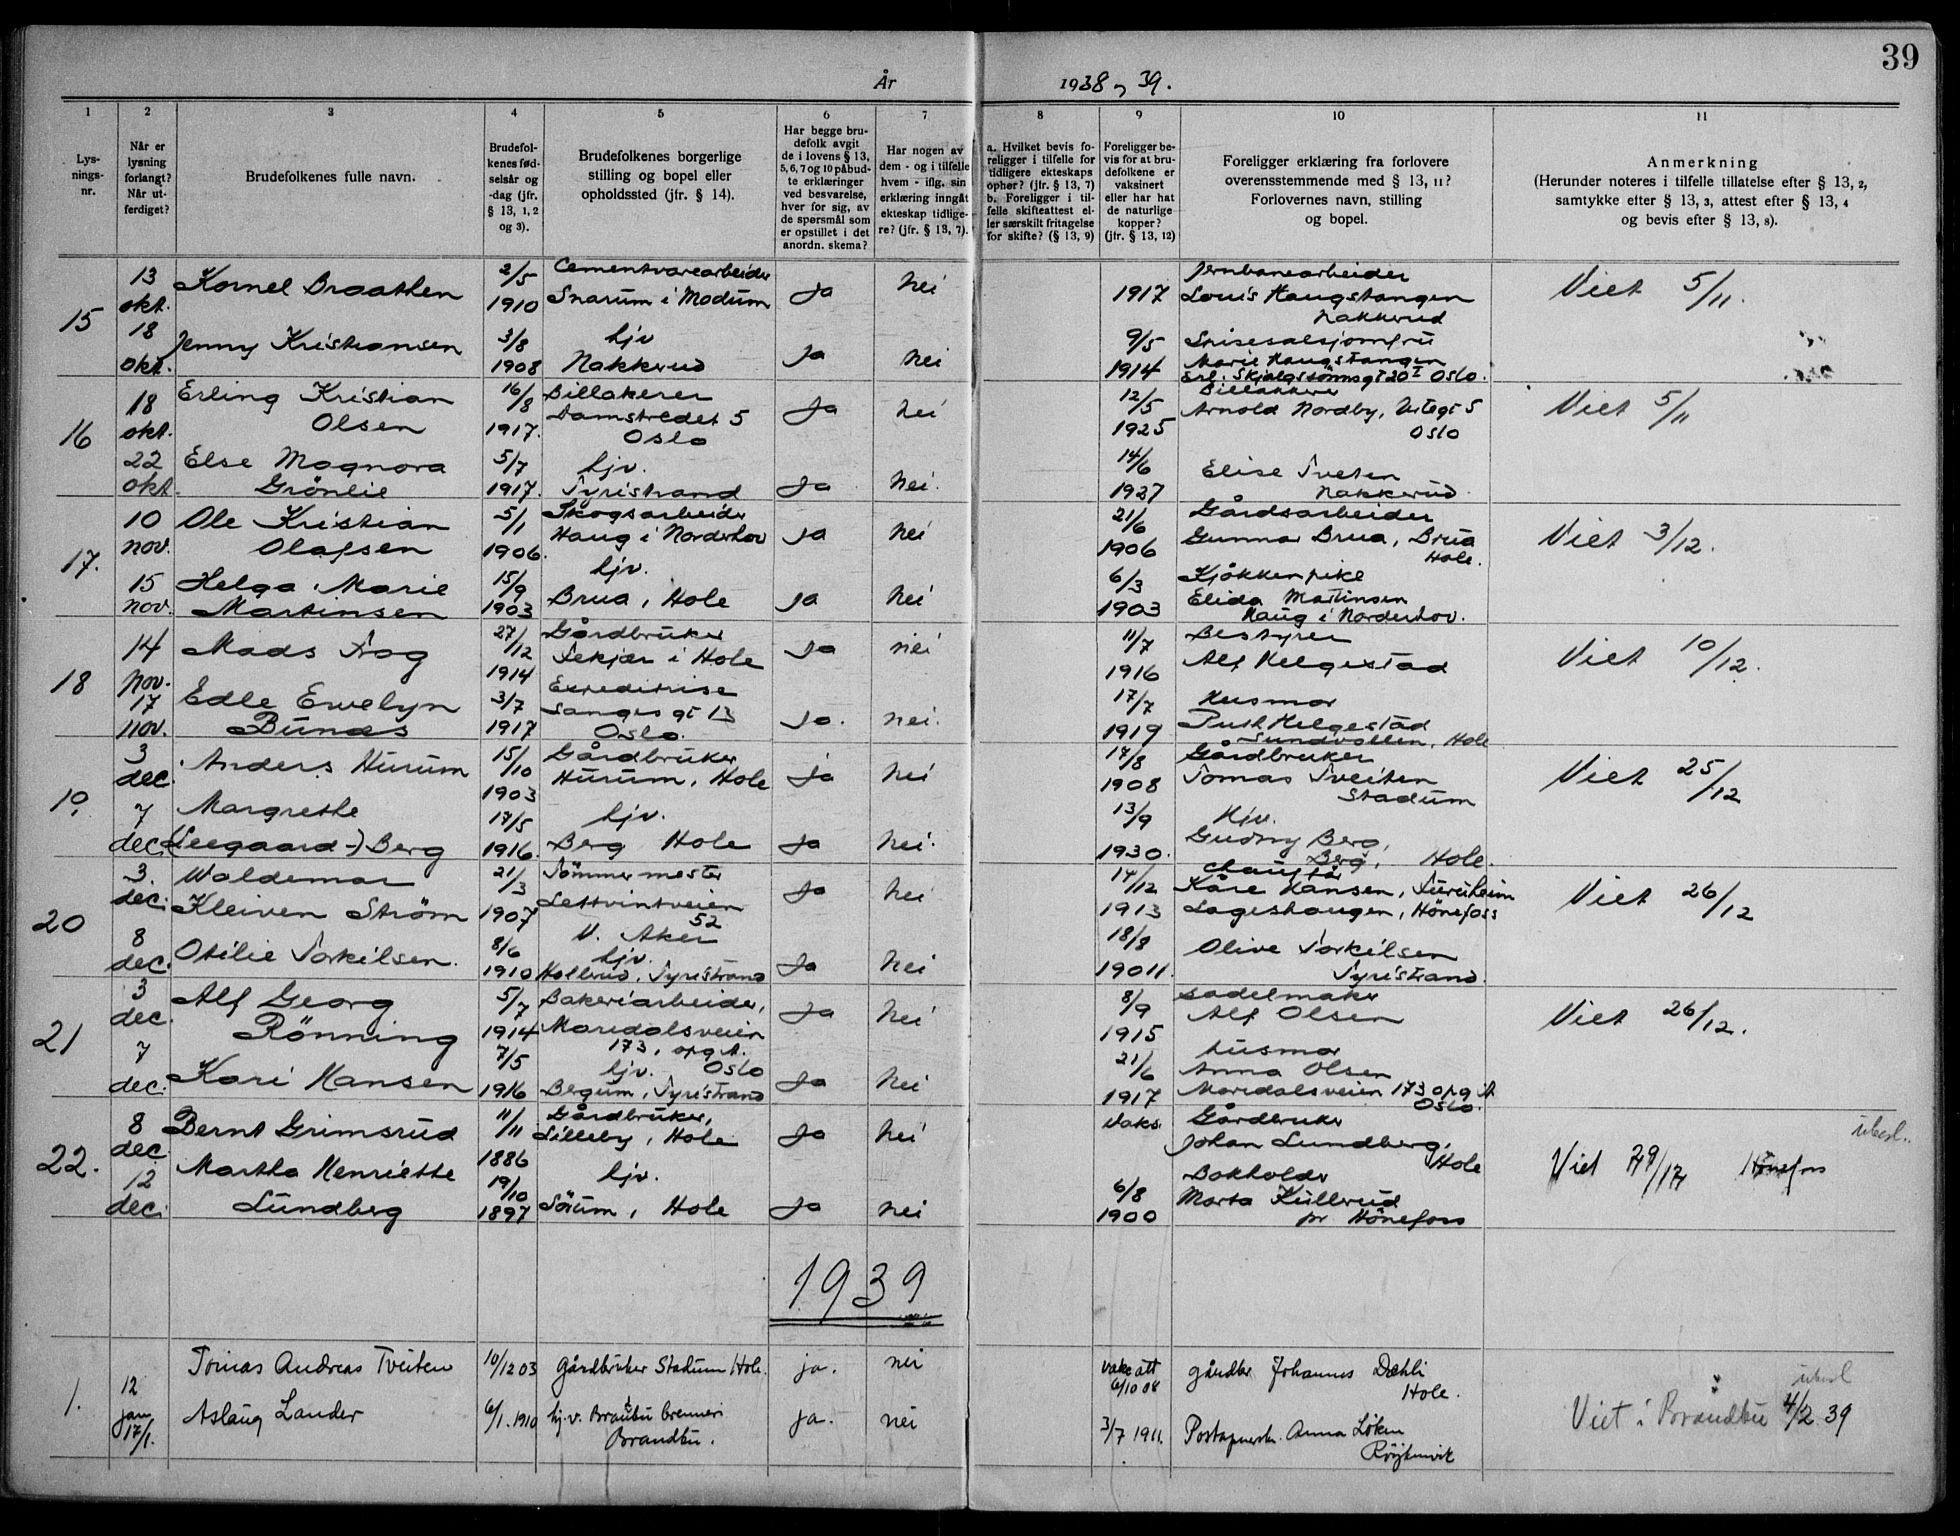 39
År 1938 og 39.
1 2 3 4 5 6 7 8 9 10 11
Lysningsnr.
Når er lysning forlangt? Når utferdiget?
Brudefolkenes fulle navn.
Brudefolkenes fødselsår og -dag (jfr. § 13, 1, 2 og 3).
Brudefolkenes borgerlige stilling og bopel eller opholdssted (jfr. § 14).
Har begge brudefolk avgit de i lovens § 13, 5, 6, 7 og 10 påbudte erklæringer ved besvarelse, hver for sig, av de spørsmål som er opstillet i det anordn. skema?
Har nogen av dem - og i tilfelle hvem - iflg. sin erklæring inngått ekteskap tidligere? (jfr. § 13, 7).
a. Hvilket bevis foreligger i tilfelle for tidligere ekteskaps ophør? (jfr. § 13, 7) b. Foreligger i tilfelle skifteattest eller særskilt fritagelse for skifte? (§ 13, 9)
Foreligger bevis for at brudefolkene er vaksinert eller har hat de naturlige kopper? (jfr. § 13, 12)
Foreligger erklæring fra forlovere overensstemmende med § 13, 11? Forlovernes navn, stilling og bopel.
Anmerkning (Herunder noteres i tilfelle tillatelse efter § 13, 2, samtykke efter § 13, 3, attest efter § 13, 4 og bevis efter § 13, 8).
15 13 okt. Kornel Braathen 2/5 1910 Cementvarearbeider Snarum i Modum ja nei 1917 Jernbanearbeider Louis Haugstangen Nakkerud Viet 5/11.
18 okt. Jenny Kristiansen 3/8 1908 hjv Nakkerud ja nei 9/5 1914 Spisesalsjomfru Marie Haugstangen Erl. Skjalgssönnsgt 20 I Oslo.
16 18 okt. Erling Kristian Olsen 16/8 1917. Billakerer Damstredet 5 Oslo ja nei 12/5 1925 Billakkerer Arnold Nordby, 5 Oslo Viet 5/11
22 okt. Else Magnora Grönlie 5/7 1917. hjv. Tyristrand ja nei. 14/6 1927 Elise Tveten Nakkerud
17. 10 nov. Ole Kristian Olafsen 5/1 1906. Skogsarbeider Haug i Norderhov ja nei 21/6 1906 Gårdsarbeider Gunnar Brua, Brua Hole. Viet 3/12.
15 nov. Helga Marie Martinsen 15/9 1903 hjv. Brua, Hole ja nei 6/3 1903 Kjökkenpike Elida Martinsen Haug i Norderhov.
18 14 nov. Mads Rog 27/12 1914 Gårdbruker Lekjær i Hole ja nei 11/7 1916 Bestyrer Alf Helgestad Viet 10/12.
17 nov. Edle Ewelyn Bündes 3/7 1917 Expeditrise Langes gt 13 Oslo. ja. nei. 17/7 1919 Husmor Ruth Helgestad Sundvollen, Hole
19. 3 dec. Anders Hurum 15/10 1903 Gårdbruker Hurum, Hole ja nei 17/8 1908 Gårdbruker Tomas Tveiten Stadum Viet 25/12
7 dec. Margrethe (Leegaard-) Berg 17/5 1916. hjv. Berg Hole ja nei. 13/9 1930. Hjv. Gudny Berg, Berg, Hole.
20 3. dec. Waldemar Kleiven Ström 21/3 1907 Tömmermester Lettvintveien 52 V. Aker ja nei 14/12 1913 Chaufför Kåre Hansen, Lageshaugen, Hönefoss Viet 26/12
8 dec. Otilie Torkilsen. 8/6 1910 hjv. Hollerud, Tyristrand ja nei 18/8 19011. Olive Torkilsen Tyristrand.
21 3 dec. Alf Georg Rönning 5/7 1914 Bakeriarbeider, Maridalsveien 173, opg A. Oslo ja nei 8/9 1915 Sadelmaker Alf Olsen Viet 26/12.
7 dec. Kari Hansen 7/5 1916 hjv. Bergum, Tyristrand ja nei 21/6 1917 husmor Anna Olsen Maridalsveien 173 opg A Oslo.
22. 8 dec. Bernt Grimsrud 11/11 1886 Gårdbruker, Lilleby, Hole ja nei vaks. Gårdbruker Johan Lundberg, Hole Viet Hönefoss ubesl..
12 dec. Martha Henriette Lundberg 19/10 1897 hjv. Sörum, Hole ja nei 6/8 1900 Bokholder Marta Kullerud pr Hönefoss
1939
1. 12 jan Tomas Andreas Tveiten 10/12 03 gårdbruker Stadum Hole. ja. nei vakc att 6/10 08 gårdbr Johannes Dæhli Hole. ubesl
17/1. Aslaug Lander 6/1. 1910 hj.v. Brandbu brenneri Brandbu. ja. nei 3/7 1911. Anna Löken Röykenvik Viet i Brandbu 4/2 39